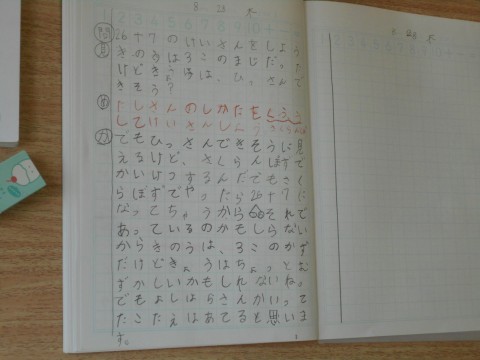 8 23 木
26+7のけいさんをしよう
きのうは3このまじだった
けどきょうは、ひっさんで
きそう?
たしざんのしかたをくふう
してけいさんし
でもひっさんできそうに見
えるけど、さくらんぼで
かいけつするんだでもさく
らぼずでやったら26+7に
なってちゃうから それで
あっているのかもしらない
からきのうは、3このかず
だけどきょうはちょっとむ
ずかしいかもしれないねっ
でもよしはらさんがいって
たこたえはあてると思いま
す。